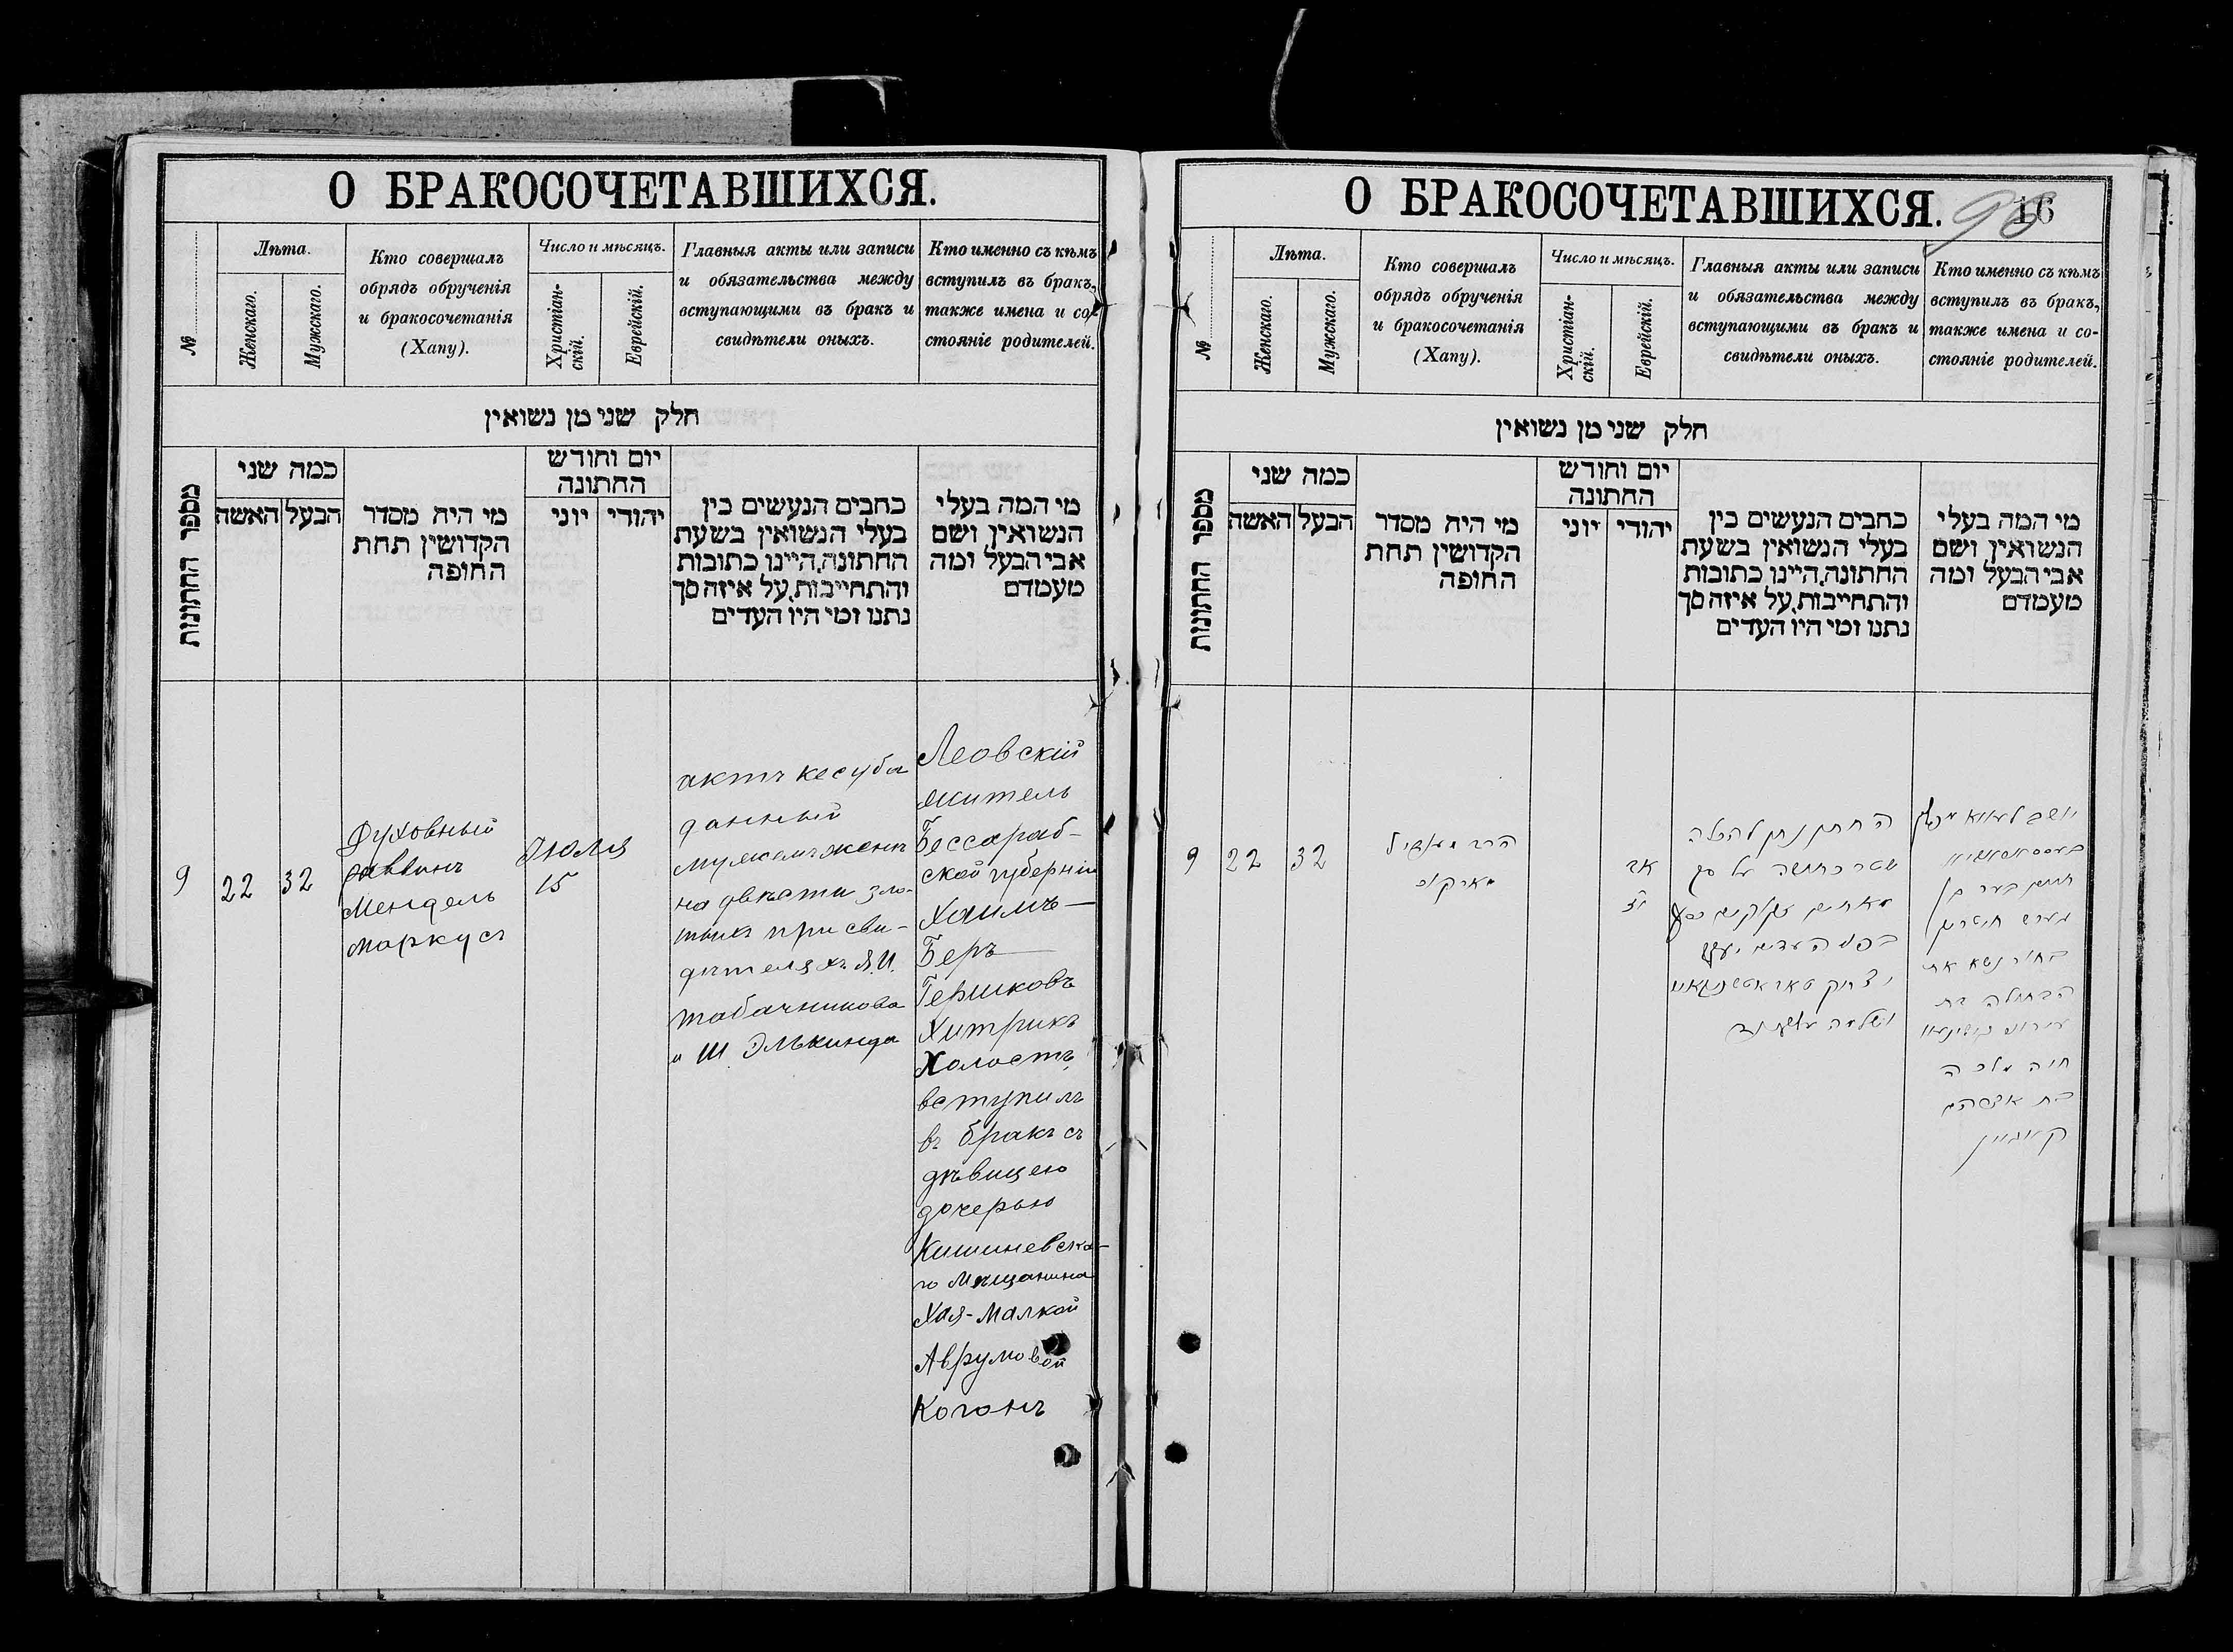 О БРАКОСОЧЕТАВШИХСЯ.
№
Лѣта.
Женскаго.
Мужскаго.
Кто совершалъ
обрядъ обрученія
и бракосочетанія
(Хапу).
Число и мѣсяцъ.
Христіан-
скій.
Еврейскій.
Главныя акты или записи
и обязательства между
вступающими въ бракъ и
свидѣтели оныхъ.
Кто именно съ кѣмъ
вступилъ въ бракъ,
также имена и со-
стояніе родителей.
חלק שני מן נשואין
מספר החתונות
כמה שני
האשה
הבעל
מי היה מסדר
הקדושין תחת
החופה
יום וחודש
החתונה
יוני
יהודי
כתבים הנעשים בין
בעלי הנשואין בשעת
החתונה, היינו כתובות
והתחייבות, על איזה סך
נתנו ומי היו העדים
מי המה בעלי
הנשואין ושם
אבי הבעל ומה
מעמדם
9
22
32
Духовный
раввинъ
Мендель
Маркусъ
Июля
15
актъ кесуба
данный
мужемъ женѣ
на двѣсти зло-
тыхъ при сви-
дѣтеляхъ Я.И.
Табачникова
и Ш Элькинда
Леовскій
житель
Бессараб-
ской губерніи
Хаимъ-
Беръ
Гершковъ
Хитрикъ
Холостъ,
вступилъ
въ бракъ съ
дѣвицею
дочерью
Кишиневска-
го Мѣщанина
Хая-Малкой
Аврумовой
Когонъ
О БРАКОСОЧЕТАВШИХСЯ.
16
№
Лѣта.
Женскаго.
Мужскаго.
Кто совершалъ
обрядъ обрученія
и бракосочетанія
(Хапу).
Число и мѣсяцъ.
Христіан-
скій.
Еврейскій.
Главныя акты или записи
и обязательства между
вступающими въ бракъ и
свидѣтели оныхъ.
Кто именно съ кѣмъ
вступилъ въ бракъ,
также имена и со-
стояніе родителей.
חלק שני מן נשואין
מספר החתונות
כמה שני
האשה
הבעל
מי היה מסדר
הקדושין תחת
החופה
יום וחודש
החתונה
יוני
יהודי
כתבים הנעשים בין
בעלי הנשואין בשעת
החתונה, היינו כתובות
והתחייבות, על איזה סך
נתנו ומי היו העדים
מי המה בעלי
הנשואין ושם
אבי הבעל ומה
מעמדם
9
22
32
הרב מענדיל
מארקוס
אב
החתן נתן להכלה
שטר כתובה על סך
מאתים זקוקים כסף
יצחק
ושלמה
חיים בער בן
הערש חיטריק
בחור נשא את
הבתולה בת
חיה מלכה
בת אברהם